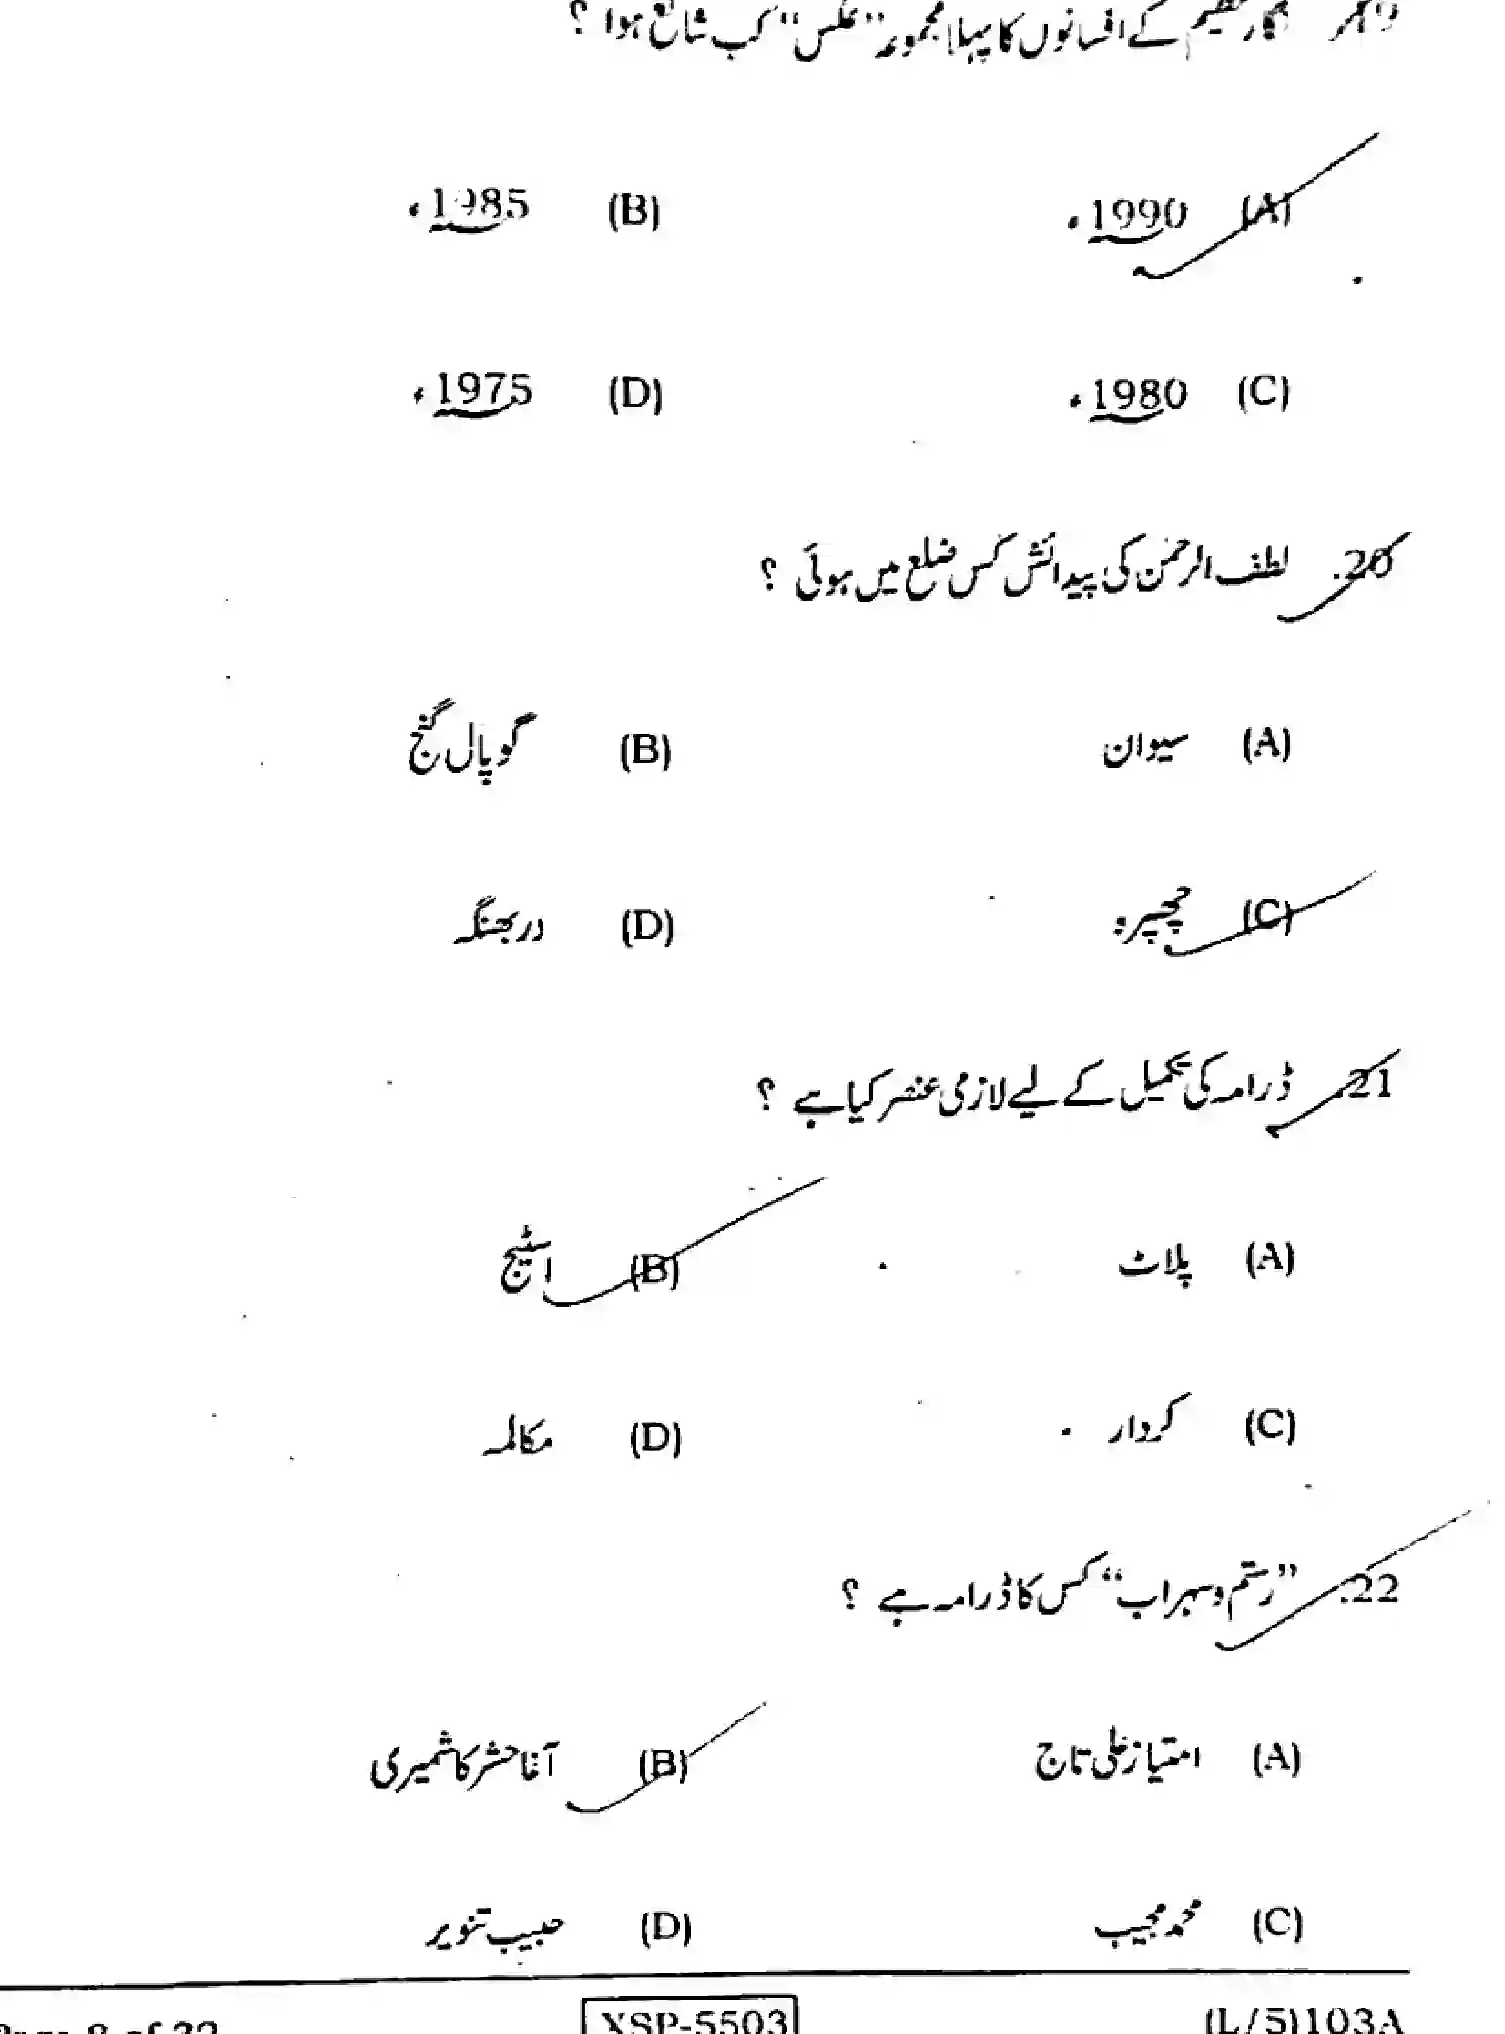 کے افسانوں کا پہلا مجموعہ ”عکس“ کب شائع ہوا ؟
(A) 1990ء (B) 1985ء
(C) 1980ء (D) 1975ء
20. لطف الرحمٰن کی پیدائش کس ضلع میں ہوئی ؟
(A) سیوان (B) گوپال گنج
(C) چھپرہ (D) دربھنگہ
21. ڈرامہ کی تکمیل کے لیے لازمی عنصر کیا ہے ؟
(A) پلاٹ (B) اسٹیج
(C) کردار (D) مکالمہ
22. ”رستم و سہراب“ کس کا ڈرامہ ہے ؟
(A) امتیاز علی تاج (B) آغا حشر کاشمیری
(C) محمد مجیب (D) حبیب تنویر
(L/5)103A XSP-5503 Page 8 of 32